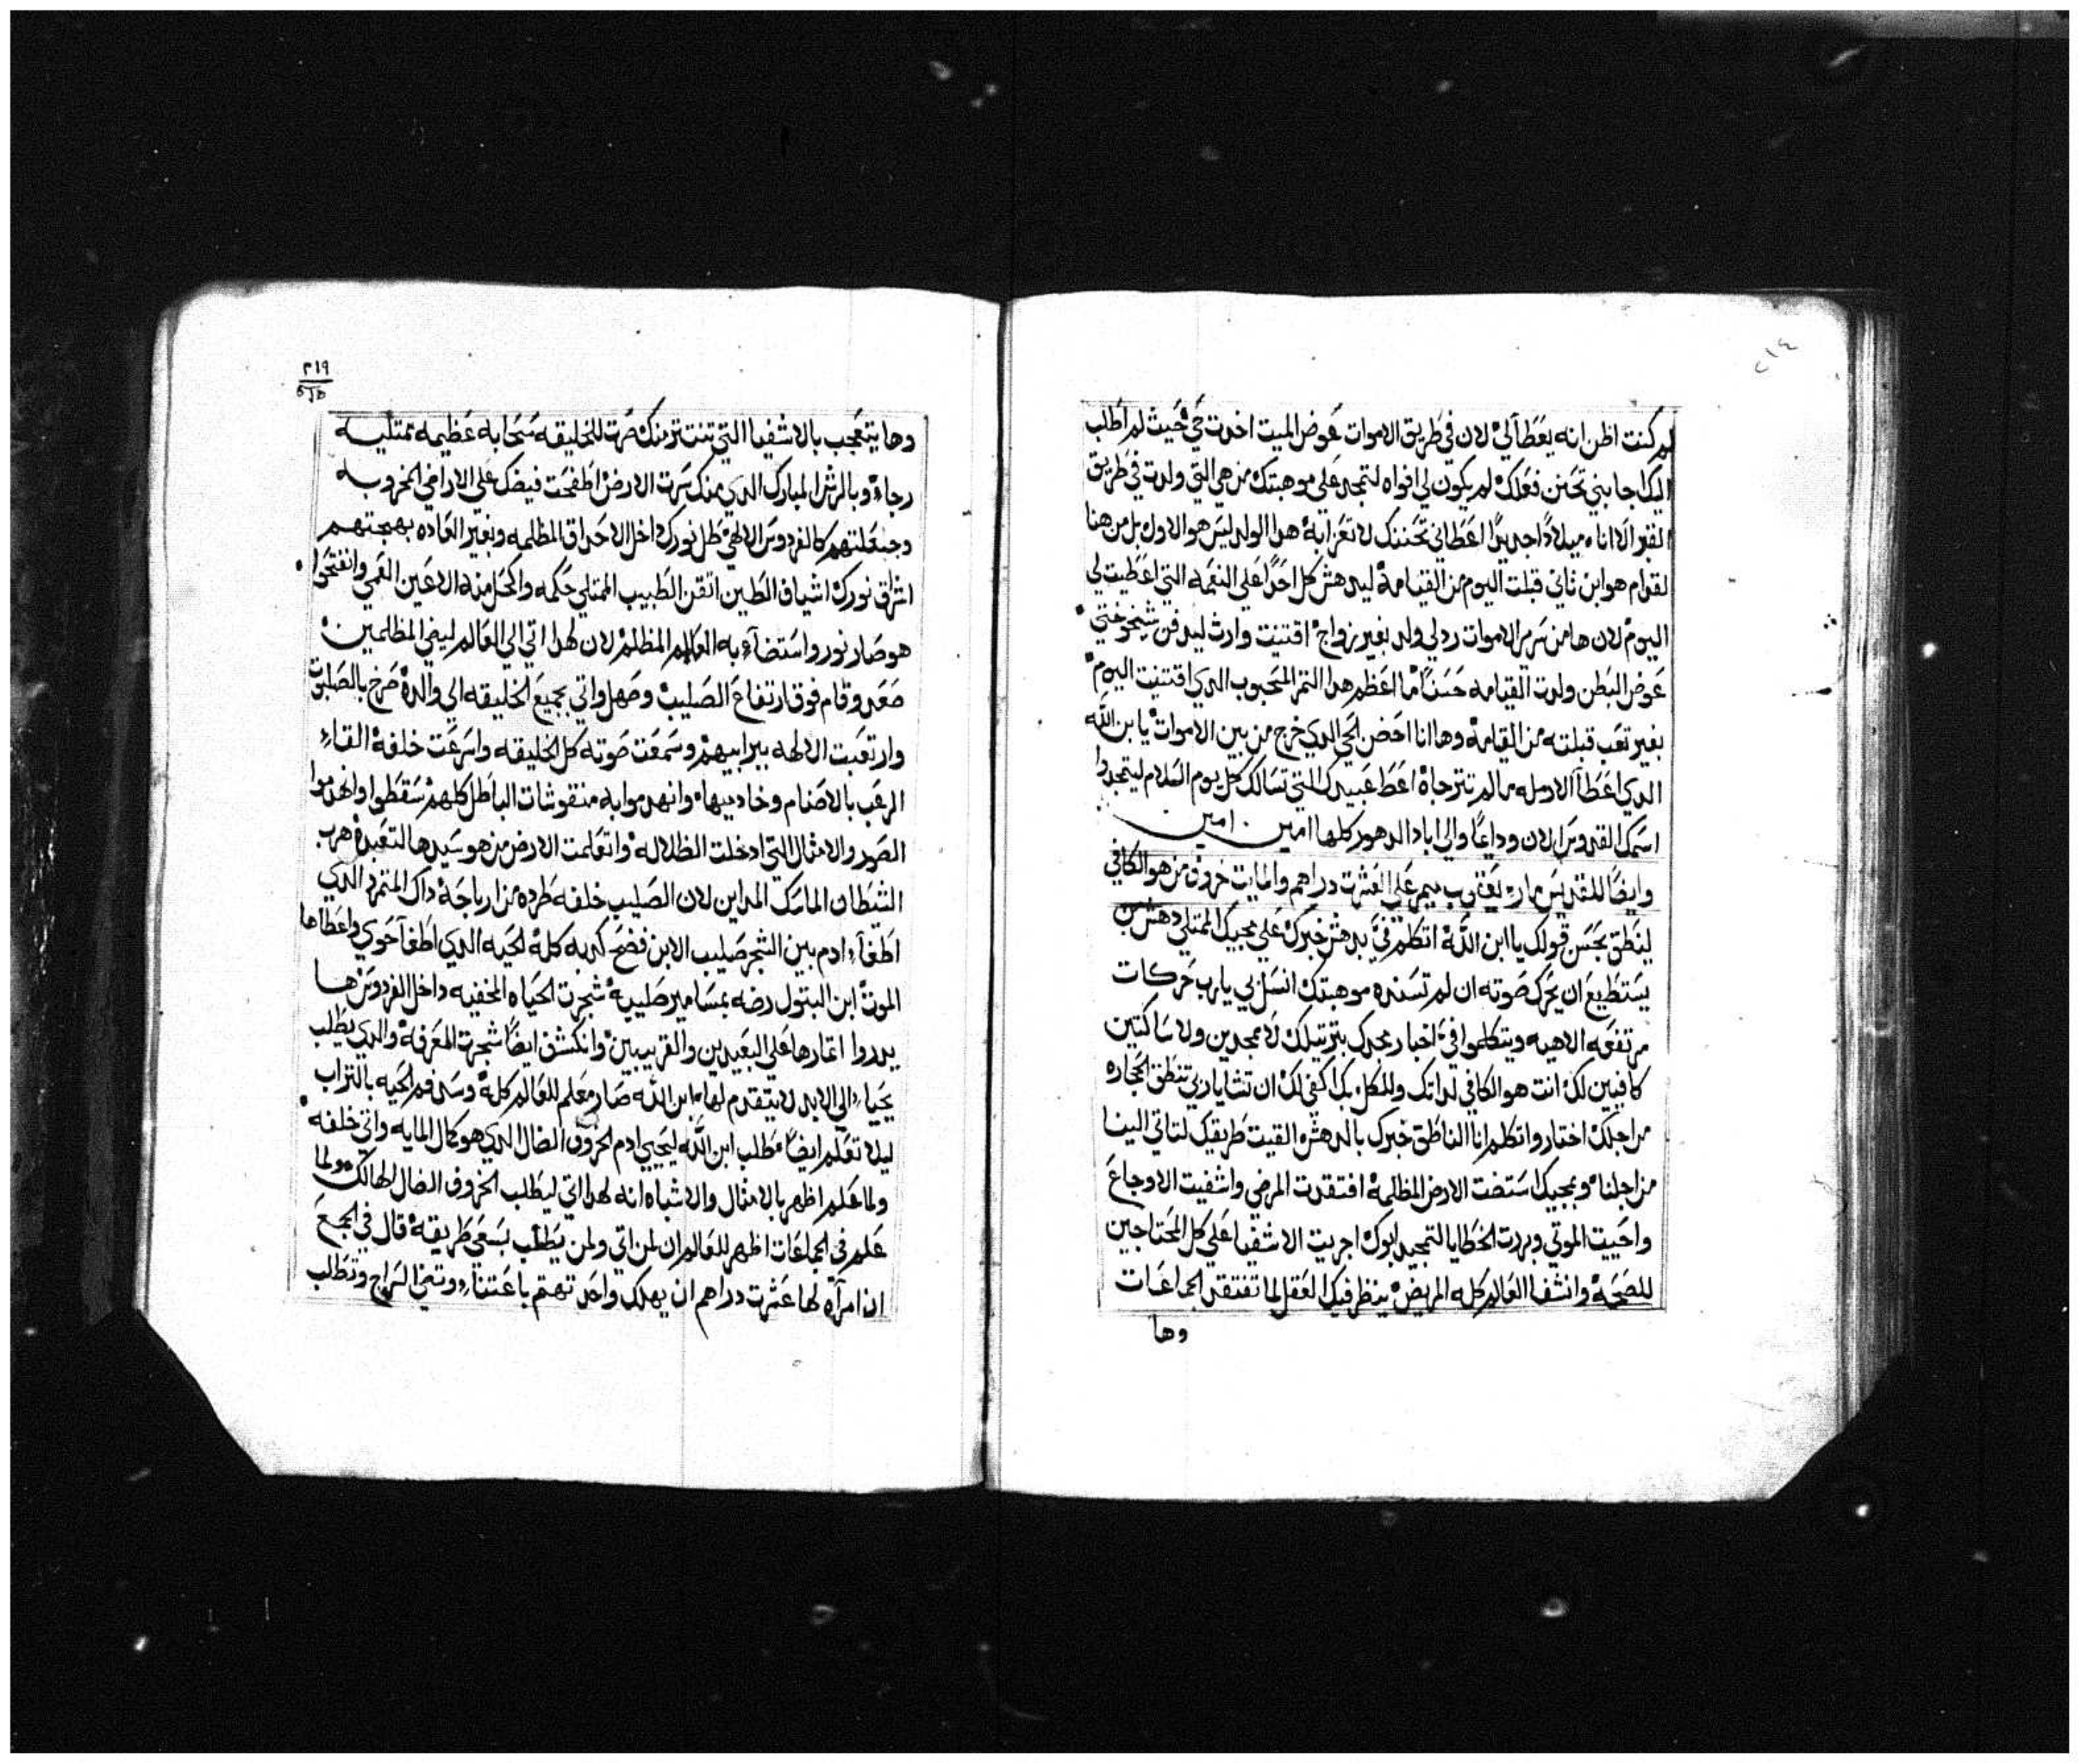 ٢١٤
لم كنت اظن انه يعطا لي لان في طريق الاموات عوض الميت اخدت حي حيث لم اطلب
اليك اجابني تحنن فعلك لم يكون لي افواه لتمجد علي موهبتك من هي التي ولدت في طريق
القبر الا انا ميلادًا جديدًا اعطاني تحننك لا تعزابة هدا الولد ليس هو الاول بل من هنا
لقوام هو ابن ثاني قبلت اليوم من القيامة ليدهش كل احدًا علي النعمه التي اعطيت لي
اليوم لان ها من سرير الاموات رد لي ولد بغير زواج اقتنيت وارث ليدفن شيخوختي
عوض البطن ولدت القيامه حسنًا ما اعظم هدا الثمر المحبوب الدي اقتنيت اليوم
بغير تعب قبلته من القيامة وها انا احضن الحي الدي خرج من بين الاموات يا ابن الله
الدي اعطا الارمله ما لم تترجاه اعط عبيدك التي تسالك كل يوم السلام ليتمجدوا
اسمك القدوس الان وداعًا والي اباد الدهور كلها امين امين
وايضًا للقديس مار يعقوب ميمر علي العشرت دراهم والمايت خروف من هو الكافي
لينطق بحسن قولك يا ابن الله اتكلم فيَّ بدهش خبرك علي مجييك الممتلي دهش من
يستطيع ان يحرك صوته ان لم تسنده موهبتك انسل بي يارب حركات
مرتفعه الاهيه ويتكلموا فيَّ اخبار مجدك بترتيلك لا ممجدين ولا ساكتين
كافيين لك انت هو الكافي لداتك وللكل بك اكفي لك ان تشا ياربي تنطق الحجاره
من اجلك اختار واتكلم انا الناطق خبرك بالدهش القيت طريقك لتاتي الينا
من اجلنا وبمجيك استضت الارض المظلمة افتقدت المرضي واشفيت الاوجاع
واحييت الموتي وبردت الخطايا لتمجيد ابوك اجريت الاشفيا علي كل المحتاجين
للصحة وانشفا العالم كله المريض ينظر فيك العقل لما تفتقد الجماعات
وها
٢١٩
وها يتعجب بالاشفيا التي تنتتر منك صرت للخليقه سحابه عظيمه ممتليه
رجاء وبالرش المبارك الدي منك سرت الارض اطفحت فيضك علي الاراضي الخروبه
وجعلتهم كالفردوس الالهي طل نورك داخل الاحداق المظلمه وبغير العاده بهجتهم
اشراق نورك اشياف الطين اتقن الطبيب الممتلي حكمه واكحل منه الاعين العمي وانفتحوا
هو صار نور واستضاء به العالم المظلم لان لهدا اتي الي العالم ليضي المظلمين
صعد وقام فوق ارتفاع الصليب وصهل واتي بجميع الخليقه الي والده صرخ بالصلبوت
وارتعبت الالهه بيرابيهم وسمعت صوته كل الخليقه واسرعت خلفة القاء
الرعب بالاصنام وخادميها وانهدموا به منقوشات الباطل كلهم سقطوا وانهدموا
الصور والامثال التي ادخلت الظلاله واتعلمت الارض من هو سيدها لتعبده هرب
الشيطان الماسك المداين لان الصليب خلفه طرده من ارباجة داك المتمرد الدي
اطغاء ادم بين الشجر صليب الابن فضح كدبه كلة الحيه الدي اطغا حوي واعطاها
الموت ابن البتول رضه بمسامير صليبه شجرت الحياه المخفيه داخل الفردوس ها
يددوا اتمارها علي البعيدين والقريبين وانكشف ايضًا شجرت المعرفة والدي يطلب
يحياء الي الابد لا يتقدم لها ابن الله صار معلم للعالم كلة وسد فم الحيه بالتراب
ليلا تعلم ايضًا طلب ابن الله ليحيي ادم الخروف الضال الدي هو كمال المايه واتي خلفه
ولما علم اظهر بالامثال والاشباه انه لهدا اتي ليطلب الخروف الضال الهالك ولما
علم في الجماعات اظهر للعالم ان لمن اتي ولمن يطلب بسعي طريقة قال في الجمع
ان امرآة لها عشرت دراهم ان يهلك واحد تهتم باعتناء وتضي السراج وتطلب